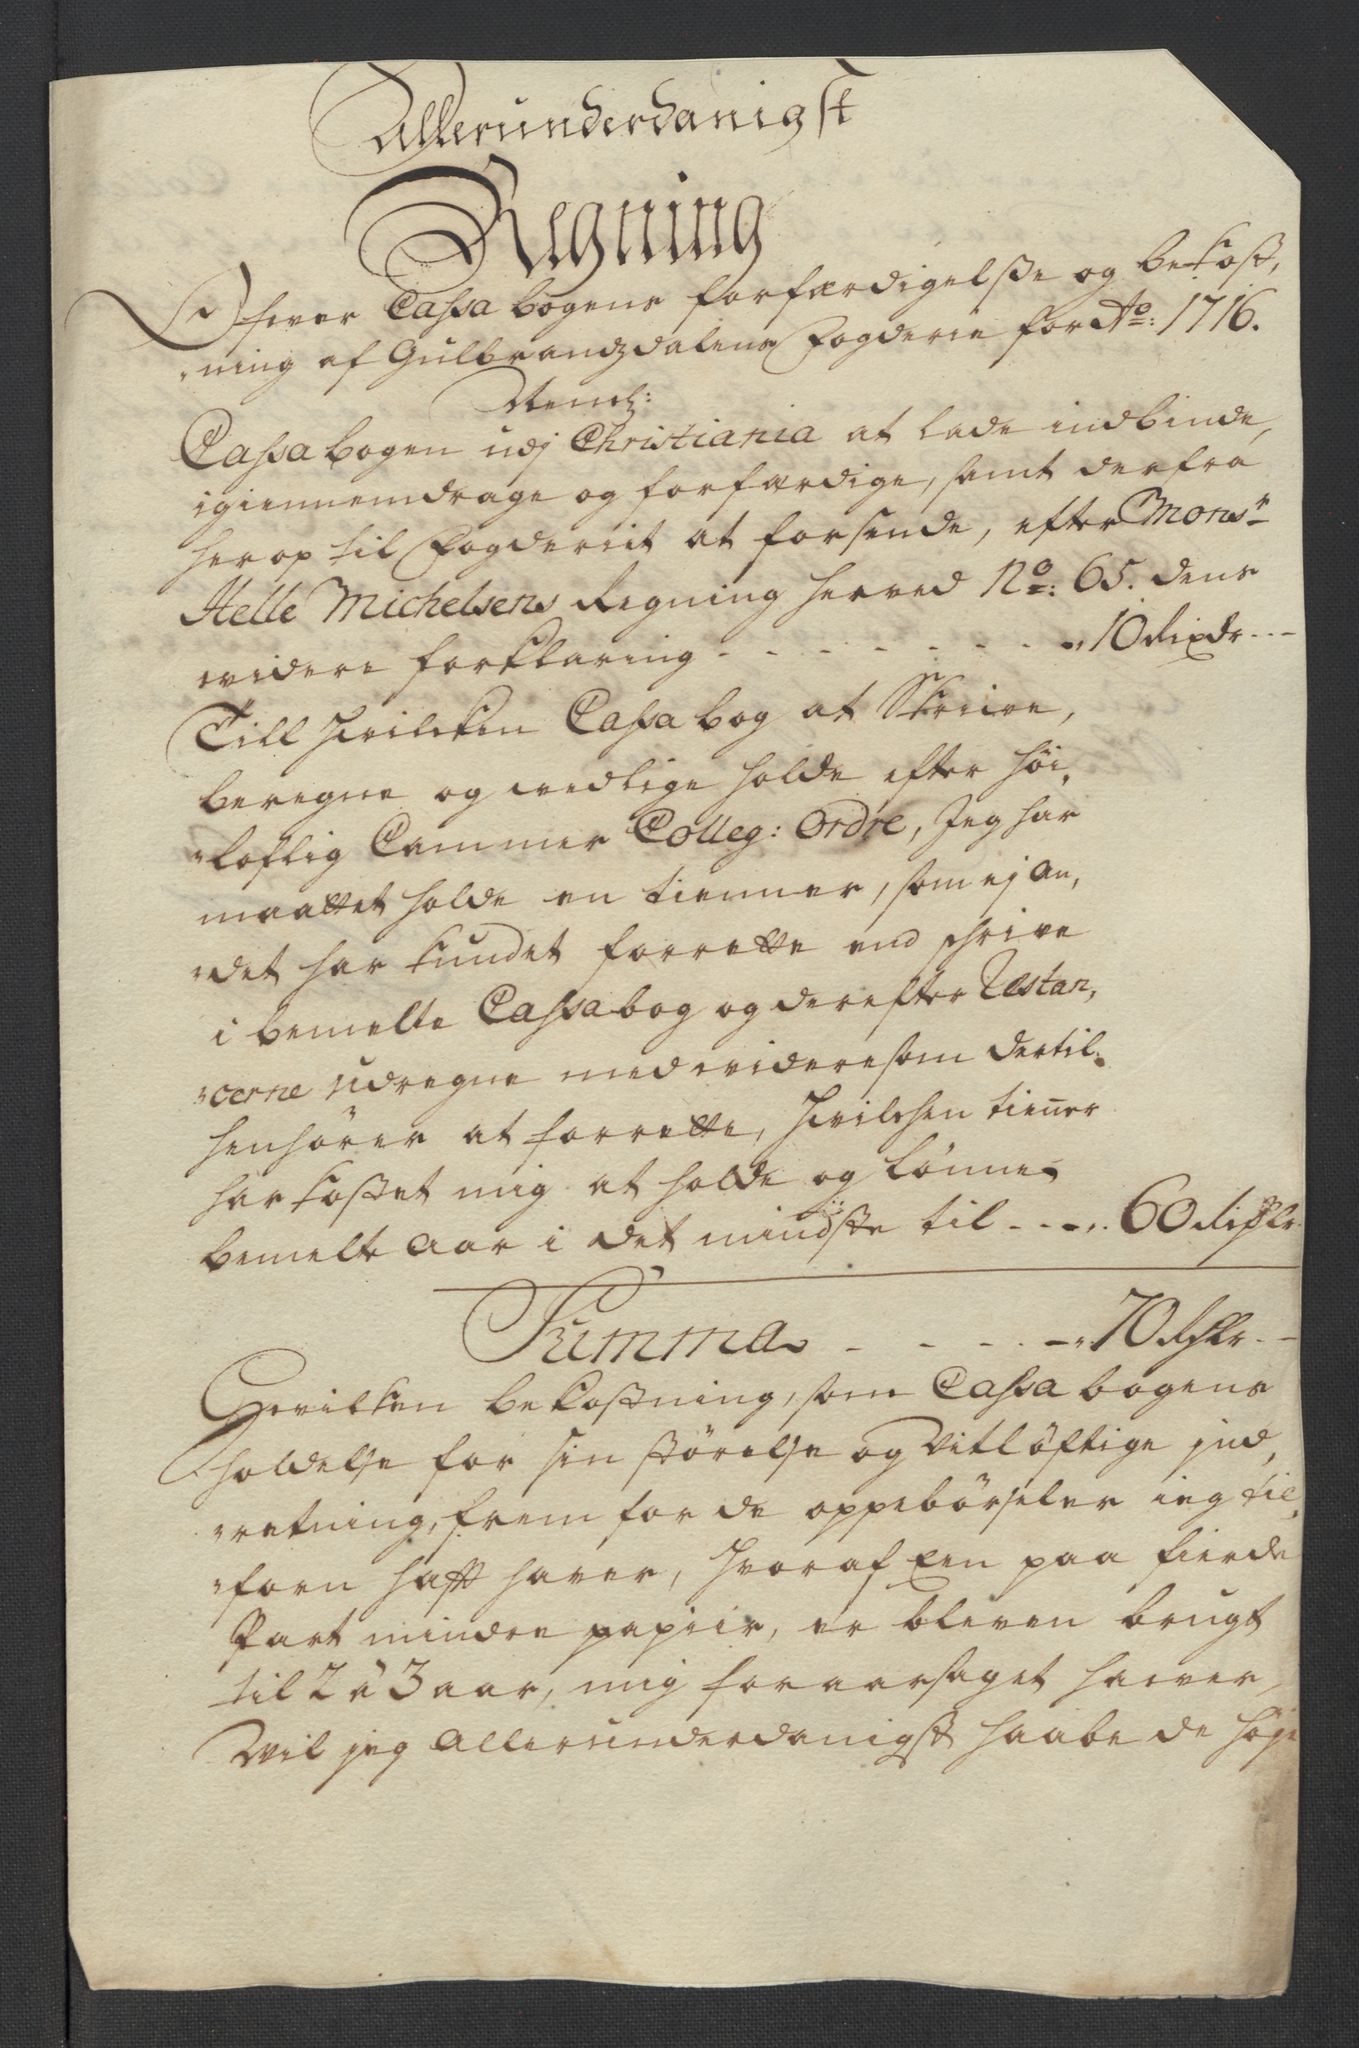 Allerunderdanigst
Regning
Ofver Cassa bogens forfærdigelsse og bekost,
„ning af Gulbrandzdalens Fogderie for Ao: 1716.
Neml:
Cassa bogen udj Christiania at lade indbinde,
igiennemdrage og forfærdige, samt derfra
her op til Fogderiet at forsende, efter Monsr
Helle Michelsens Regning herved No: 65. dens
videre forklaring - - - - - - - - „10 Rixdr - -
Till hvilcken Cassa bog at Skrive,
beregne og vedlige holde efter höi„
„loflig Cammer Colleg: Ordre, Jeg har
maattet holde en tienner, som ej an,
„det har kundet forrette end schrive
i bemelte Cassabog og derefter Restan,
„cerne udregne med videre som dertil„
henhörer at forrette, hvilchen tien̄er
har kostet mig at holde og lönne
bemelte Aar i det mindste til - - - „ 60 Rixdr
Summa - - - - - „70 Rdlr - -
Hvilken bekostning, som Cassa bogens
holdelse for sin störelse og Vitlöftige jnd,
„retning, frem for de oppebörseler ieg til„
„forn hafft haver, hvoraf Een paa fierde
Part mindre papiir, er bleven brugt
til 2 à 3 aar, mig foraarsaget haver,
Vil jeg Allerunderdanigst haabe de höje